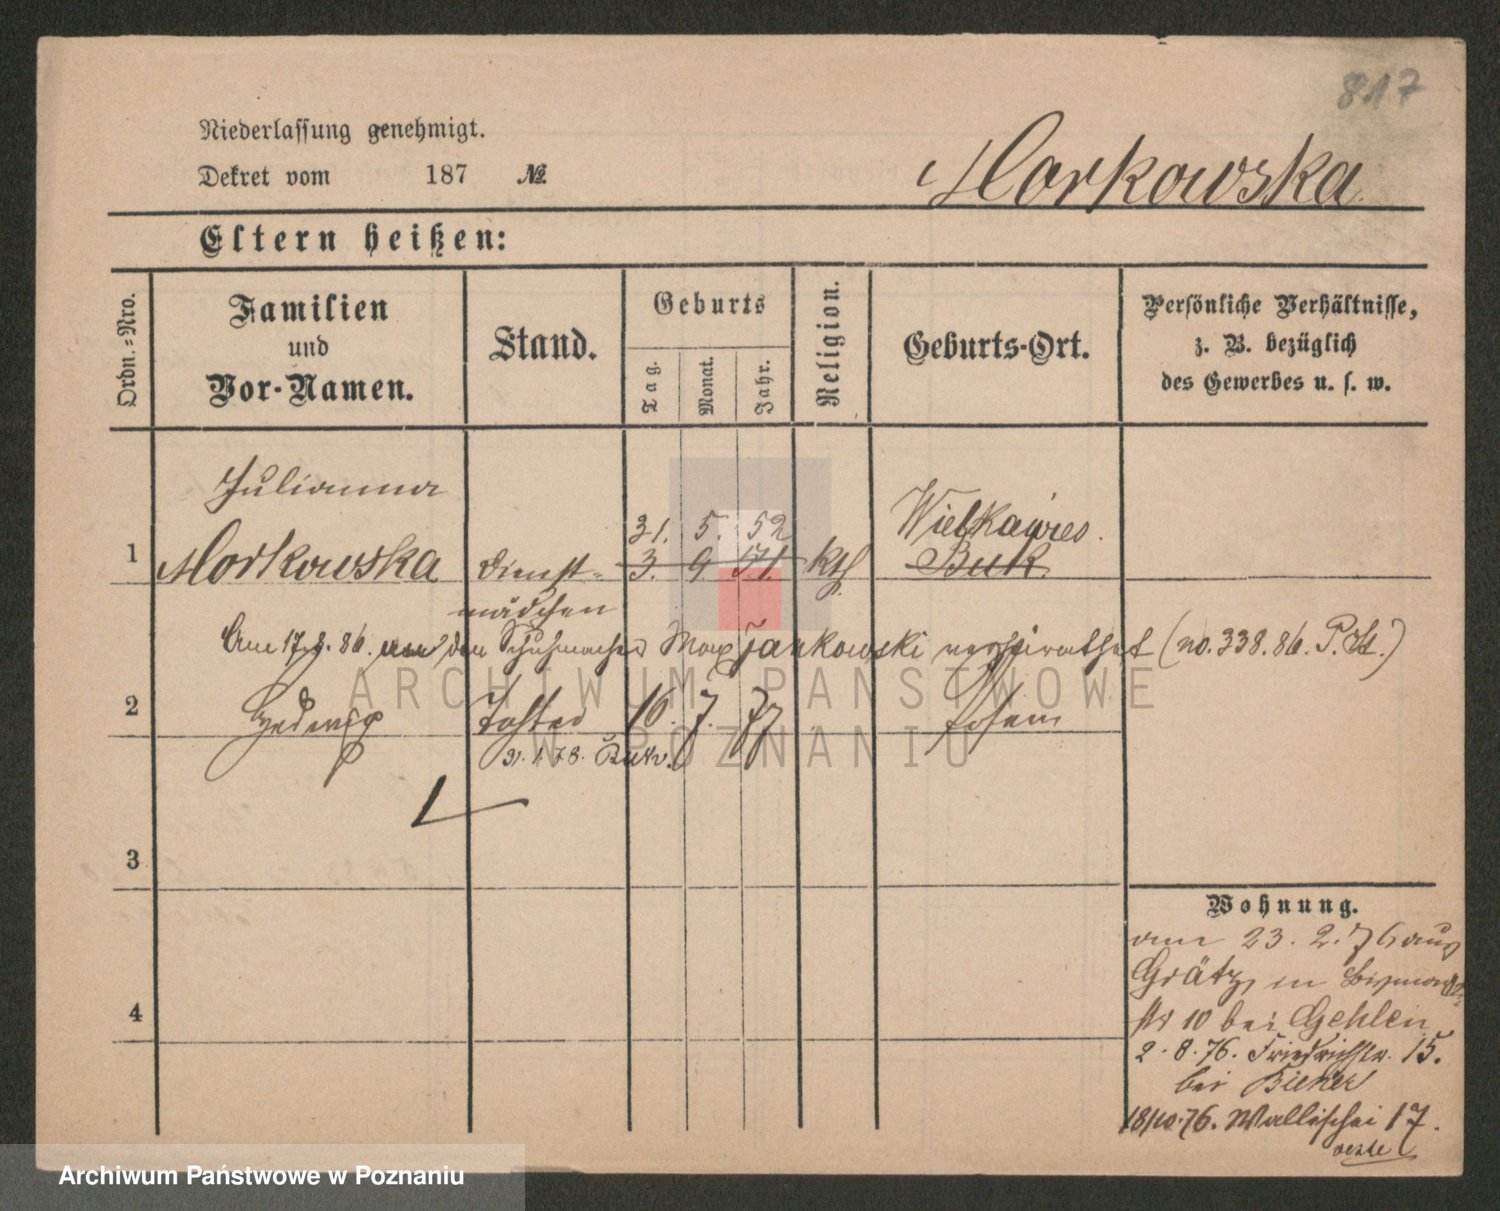 817
Niederlassung genehmigt.
Dekret vom 187 №
Morkowska
Eltern heißen:
Ordn.-Nro.
Familien
und
Vor-Namen.
Stand.
Geburts
Tag.
Monat.
Jahr.
Religion.
Geburts-Ort.
Persönliche Verhältnisse,
z. B. bezüglich
des Gewerbes u. s. w.
Julianna
31. 5. 52
1 Morkowska Dienst- 3. 9 51. kth Buk
mädchen
Am 17. 86. den Schuhmacher Max Jankowski verheirathet (no. 338. 86. P. St.)
ARCHIWUM PAŃSTWOWE
2 Hedwig Tochter 16. 7. 77 Posen
W POZNANIU
1. 78.
3
Wohnung.
am 23. 2. 76 aus
Grätz, in Bismarck
str 10 bei Gehlen
4
2. 8. 76. Friedrichstr. 15.
bei
18/10. 76. Wallischei 17.
Archiwum Państwowe w Poznaniu